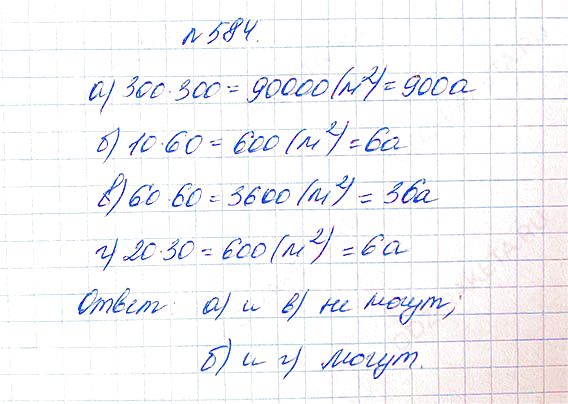 №584.
а) 300·300 = 90000 (м²) = 900а
б) 10·60 = 600 (м²) = 6а
в) 60·60 = 3600 (м²) = 36а
г) 20·30 = 600 (м²) = 6а
Ответ: а) и в) не могут;
б) и г) могут.